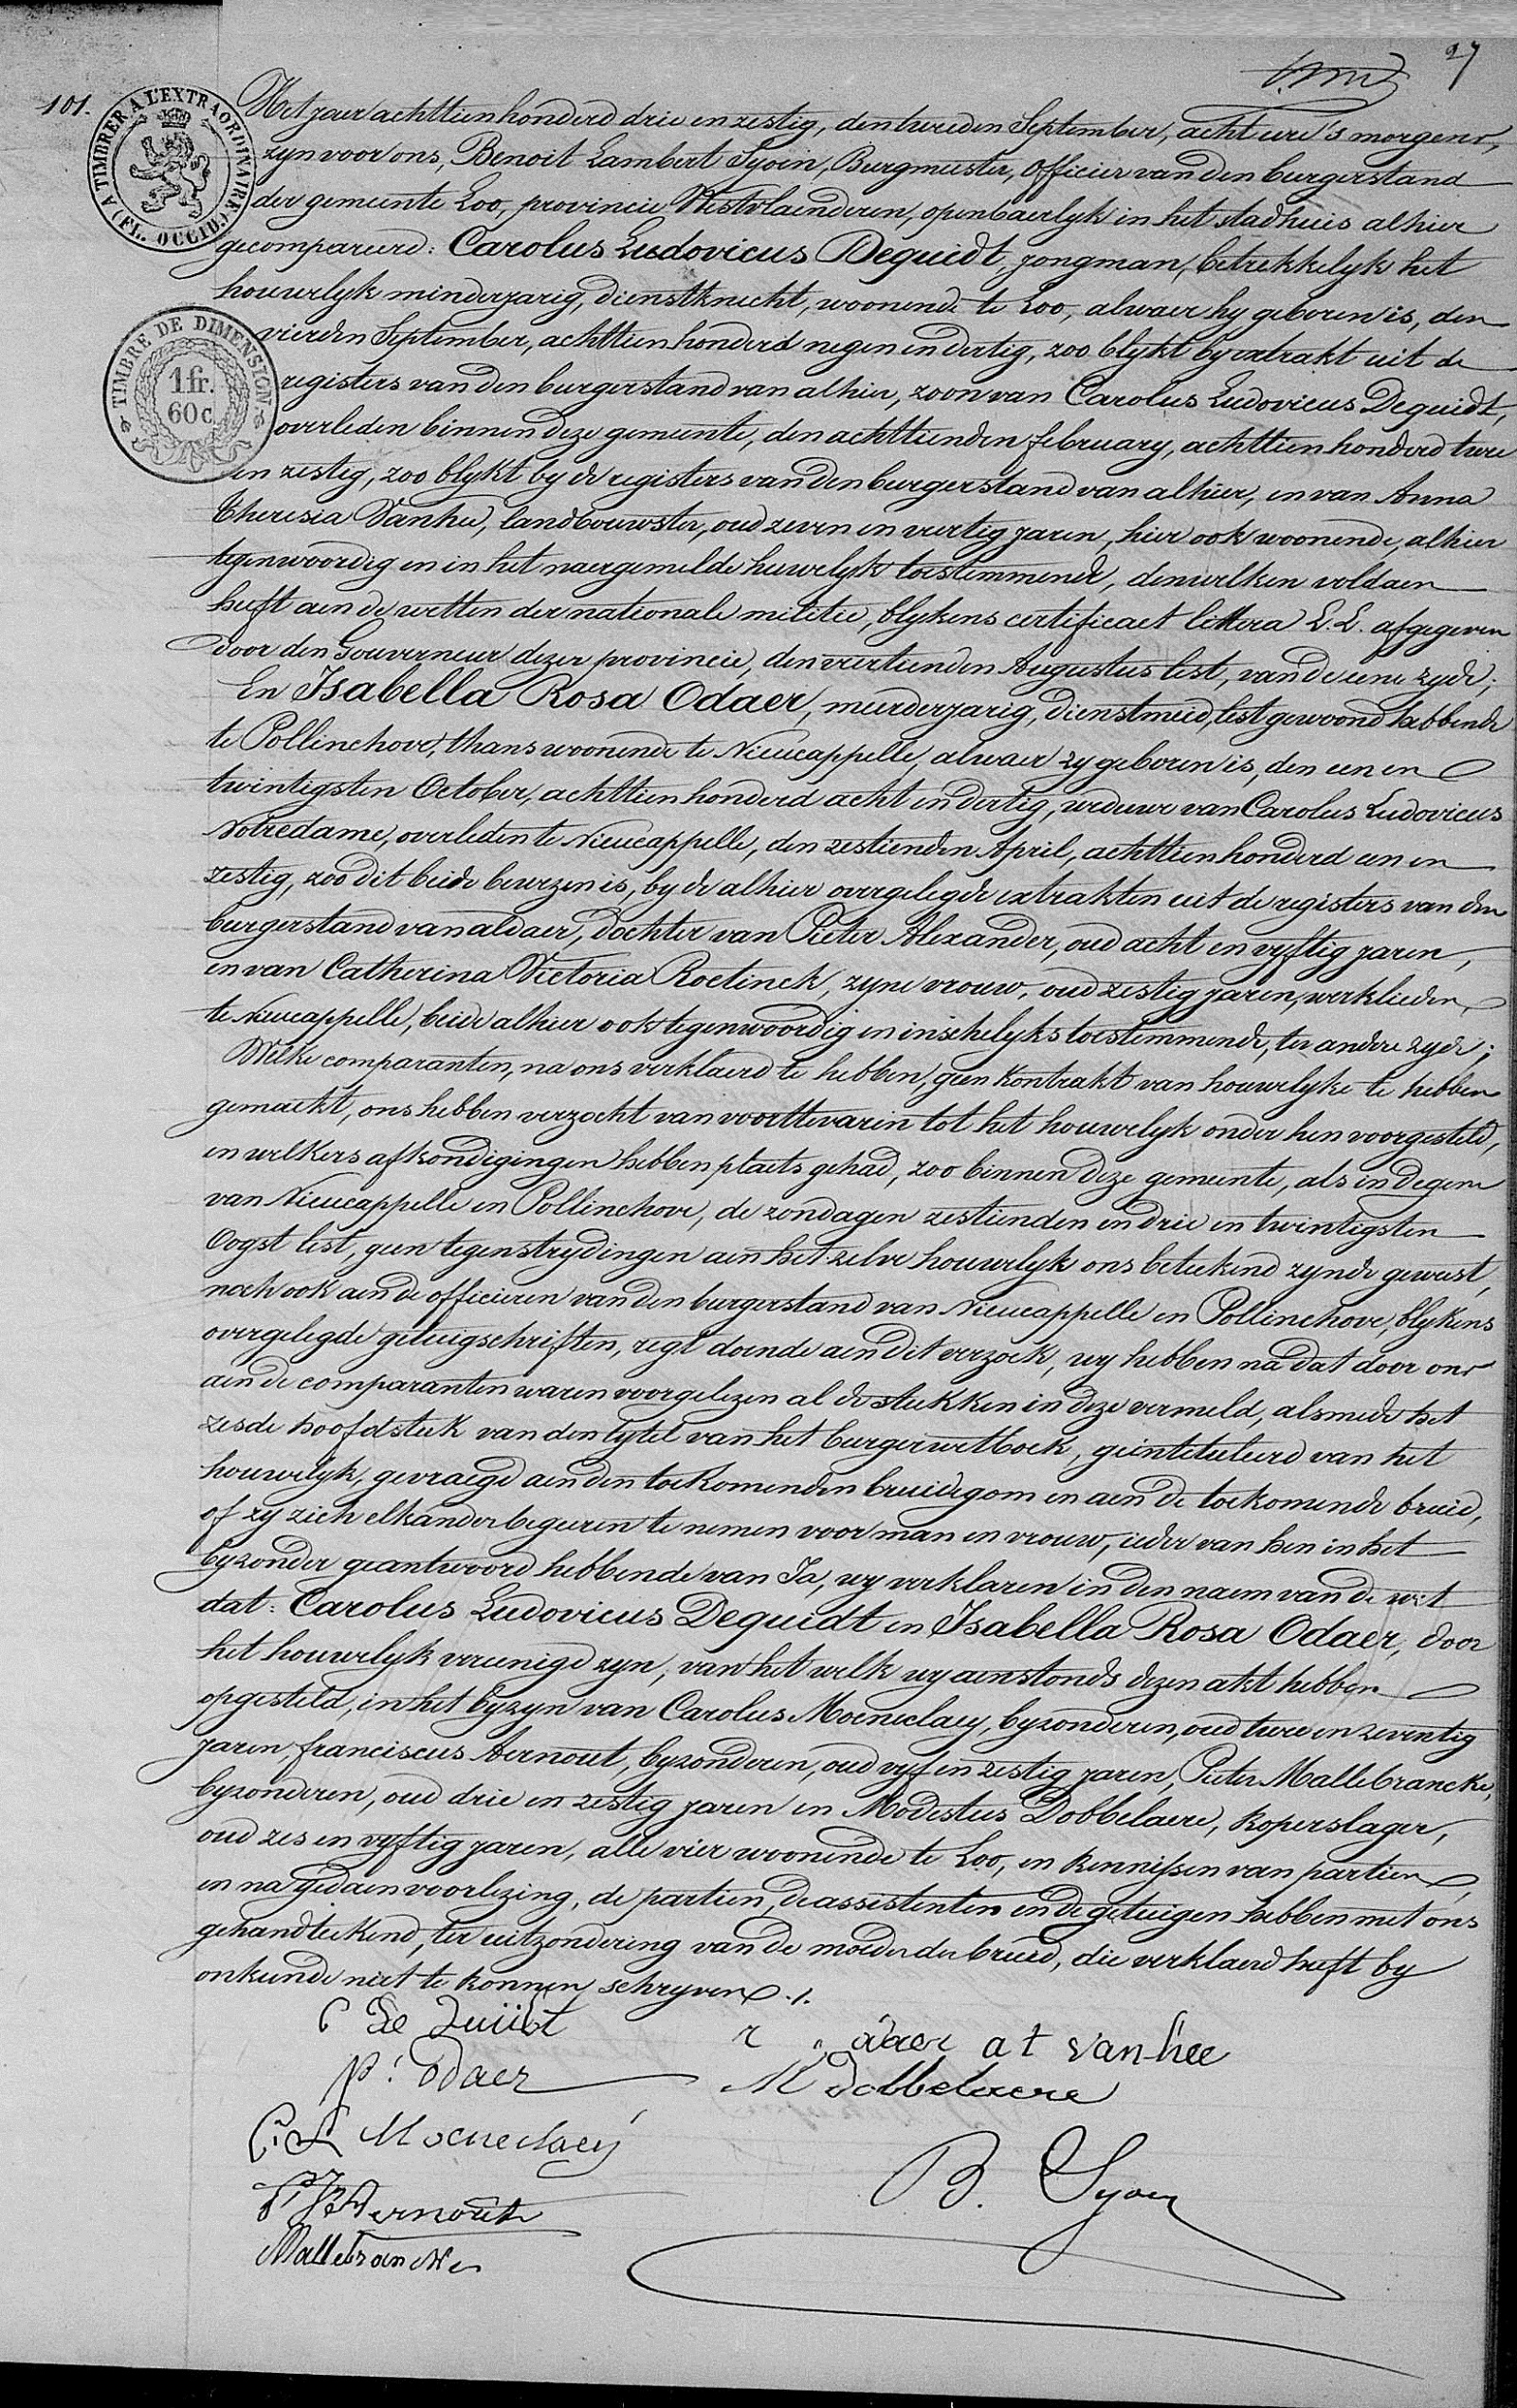 27
101.
A TIMBRER A L'EXTRAORDINAIRE
(FL. OCCID.)
TIMBRE DE DIMENSION
1 fr.
60 c
Het jaer achttien honderd drie en zestig, den tweeden September, acht ure 's morgens,
zyn voor ons, Benoit Lambert Syoin, Burgmeester, officier van den burgerstand
der gemeente Loo, provincie Westvlaenderen, openbaerlyk in het stadhuis alhier
gecompareerd: Carolus Ludovicus Deguidt, jongman, betrekkelyk het
houwelyk minderjarig, dienstknecht, woonende te Loo, alwaer hy geboren is, den
vierden September, achttien honderd negen en dertig, zoo blykt by extrakt uit de
registers van den burgerstand van alhier, zoon van Carolus Ludovicus Deguidt,
overleden binnen deze gemeente, den achttienden february, achttien honderd twee
en zestig, zoo blykt by de registers van den burgerstand van alhier, en van Anna
Theresia Vanhee, landbouwster, oud zeven en veertig jaren, hier ook woonende, alhier
tegenwoordig en in het naergemelde huwelyk toestemmende, denwelken voldaen
heeft aen de wetten der nationale militie, blykens certificaet littera L.L. afgegeven
door den Gouverneur dezer provincie, den veertienden Augustus lest, van de eene zyde;
En Isabella Rosa Odaer, meerderjarig, dienstmeid, lest gewoond hebbende
te Pollinchove, thans woonende te Nieucappelle, alwaer zy geboren is, den een en
twintigsten October, achttien honderd acht en dertig, weduwe van Carolus Ludovicus
Notredame, overleden te Nieucappelle, den zestienden April, achttien honderd een en
zestig, zoo dit beide bewezen is, by de alhier overgelegde extrakten uit de registers van den
burgerstand van aldaer, dochter van Pieter Alexander, oud acht en vyftig jaren,
en van Catherina Victoria Roetinck, zyne vrouw, oud zestig jaren, werklieden,
te Nieucappelle, beide alhier ook tegenwoordig en inschelyks toestemmende, ter andere zyde;
Welke comparanten, na ons verklaerd te hebben, geen kontrakt van houwelyke te hebben
gemaekt, ons hebben verzocht van voorttevaren tot het houwelyk onder hen voorgesteld,
en welkers afkondigingen hebben plaets gehad, zoo binnen deze gemeente, als in degene
van Nieucappelle en Pollinchove, de zondagen zestienden en drie en twintigsten
Oogst lest, geen tegenstrydingen aen het zelve houwelyk ons beteekend zynde geweest,
noch ook aen de officieren van den burgerstand van Nieucappelle en Pollinchove, blykens
overgelegde getuigschriften, regt doende aen dit verzoek, wy hebben na dat door ons
aen de comparanten waren voorgelezen al de stukken in deze vermeld, alsmede het
zesde hoofdstuk van den tytel van het burgerwetboek, geïntituleerd van het
houwelyk, gevraegd aen den toekomenden bruidegom en aen de toekomende bruid,
of zy zich elkander begeeren te nemen voor man en vrouw, ieder van hen in het
byzonder geantwoord hebbende van Ja, wy verklaren in den naem van de wet
dat: Carolus Ludovicus Deguidt en Isabella Rosa Odaer, door
het houwelyk vereenigd zyn, van het welk wy aenstonds dezen akt hebben
opgesteld, in het byzyn van Carolus Moeneclaey, byzonderen, oud twee en zeventig
jaren, franciscus Aernout, byzonderen, oud vyf en zestig jaren, Pieter Mallebrancke,
byzonderen, oud drie en zestig jaren en Modestus Dobbelaere, koperslager,
oud zes en vyftig jaren, alle vier woonende te Loo, en kennissen van partien,
en na gedaen voorlezing, de partien, de assistenten en de getuigen hebben met ons
gehandteekend, ter uitzondering van de moeder der bruid, die verklaerd heeft by
onkunde niet te konnen schryven ./.
C De Quiidt
r odaer a t vanhee
p: Odaer
M Dobbelaere
C: L Moeneclaey
B. Syoin
Aernout
Mallebrancke